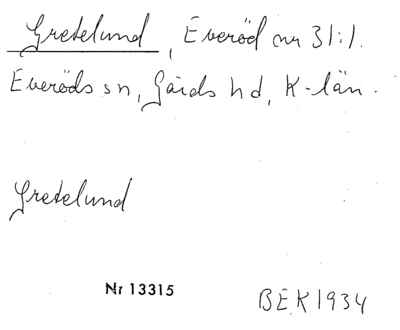 Gretelund, Everöd nr 31:1.
Everöds sn, Gärds hd, K-län.
Gretelund
Nr 13315
BEK 1934